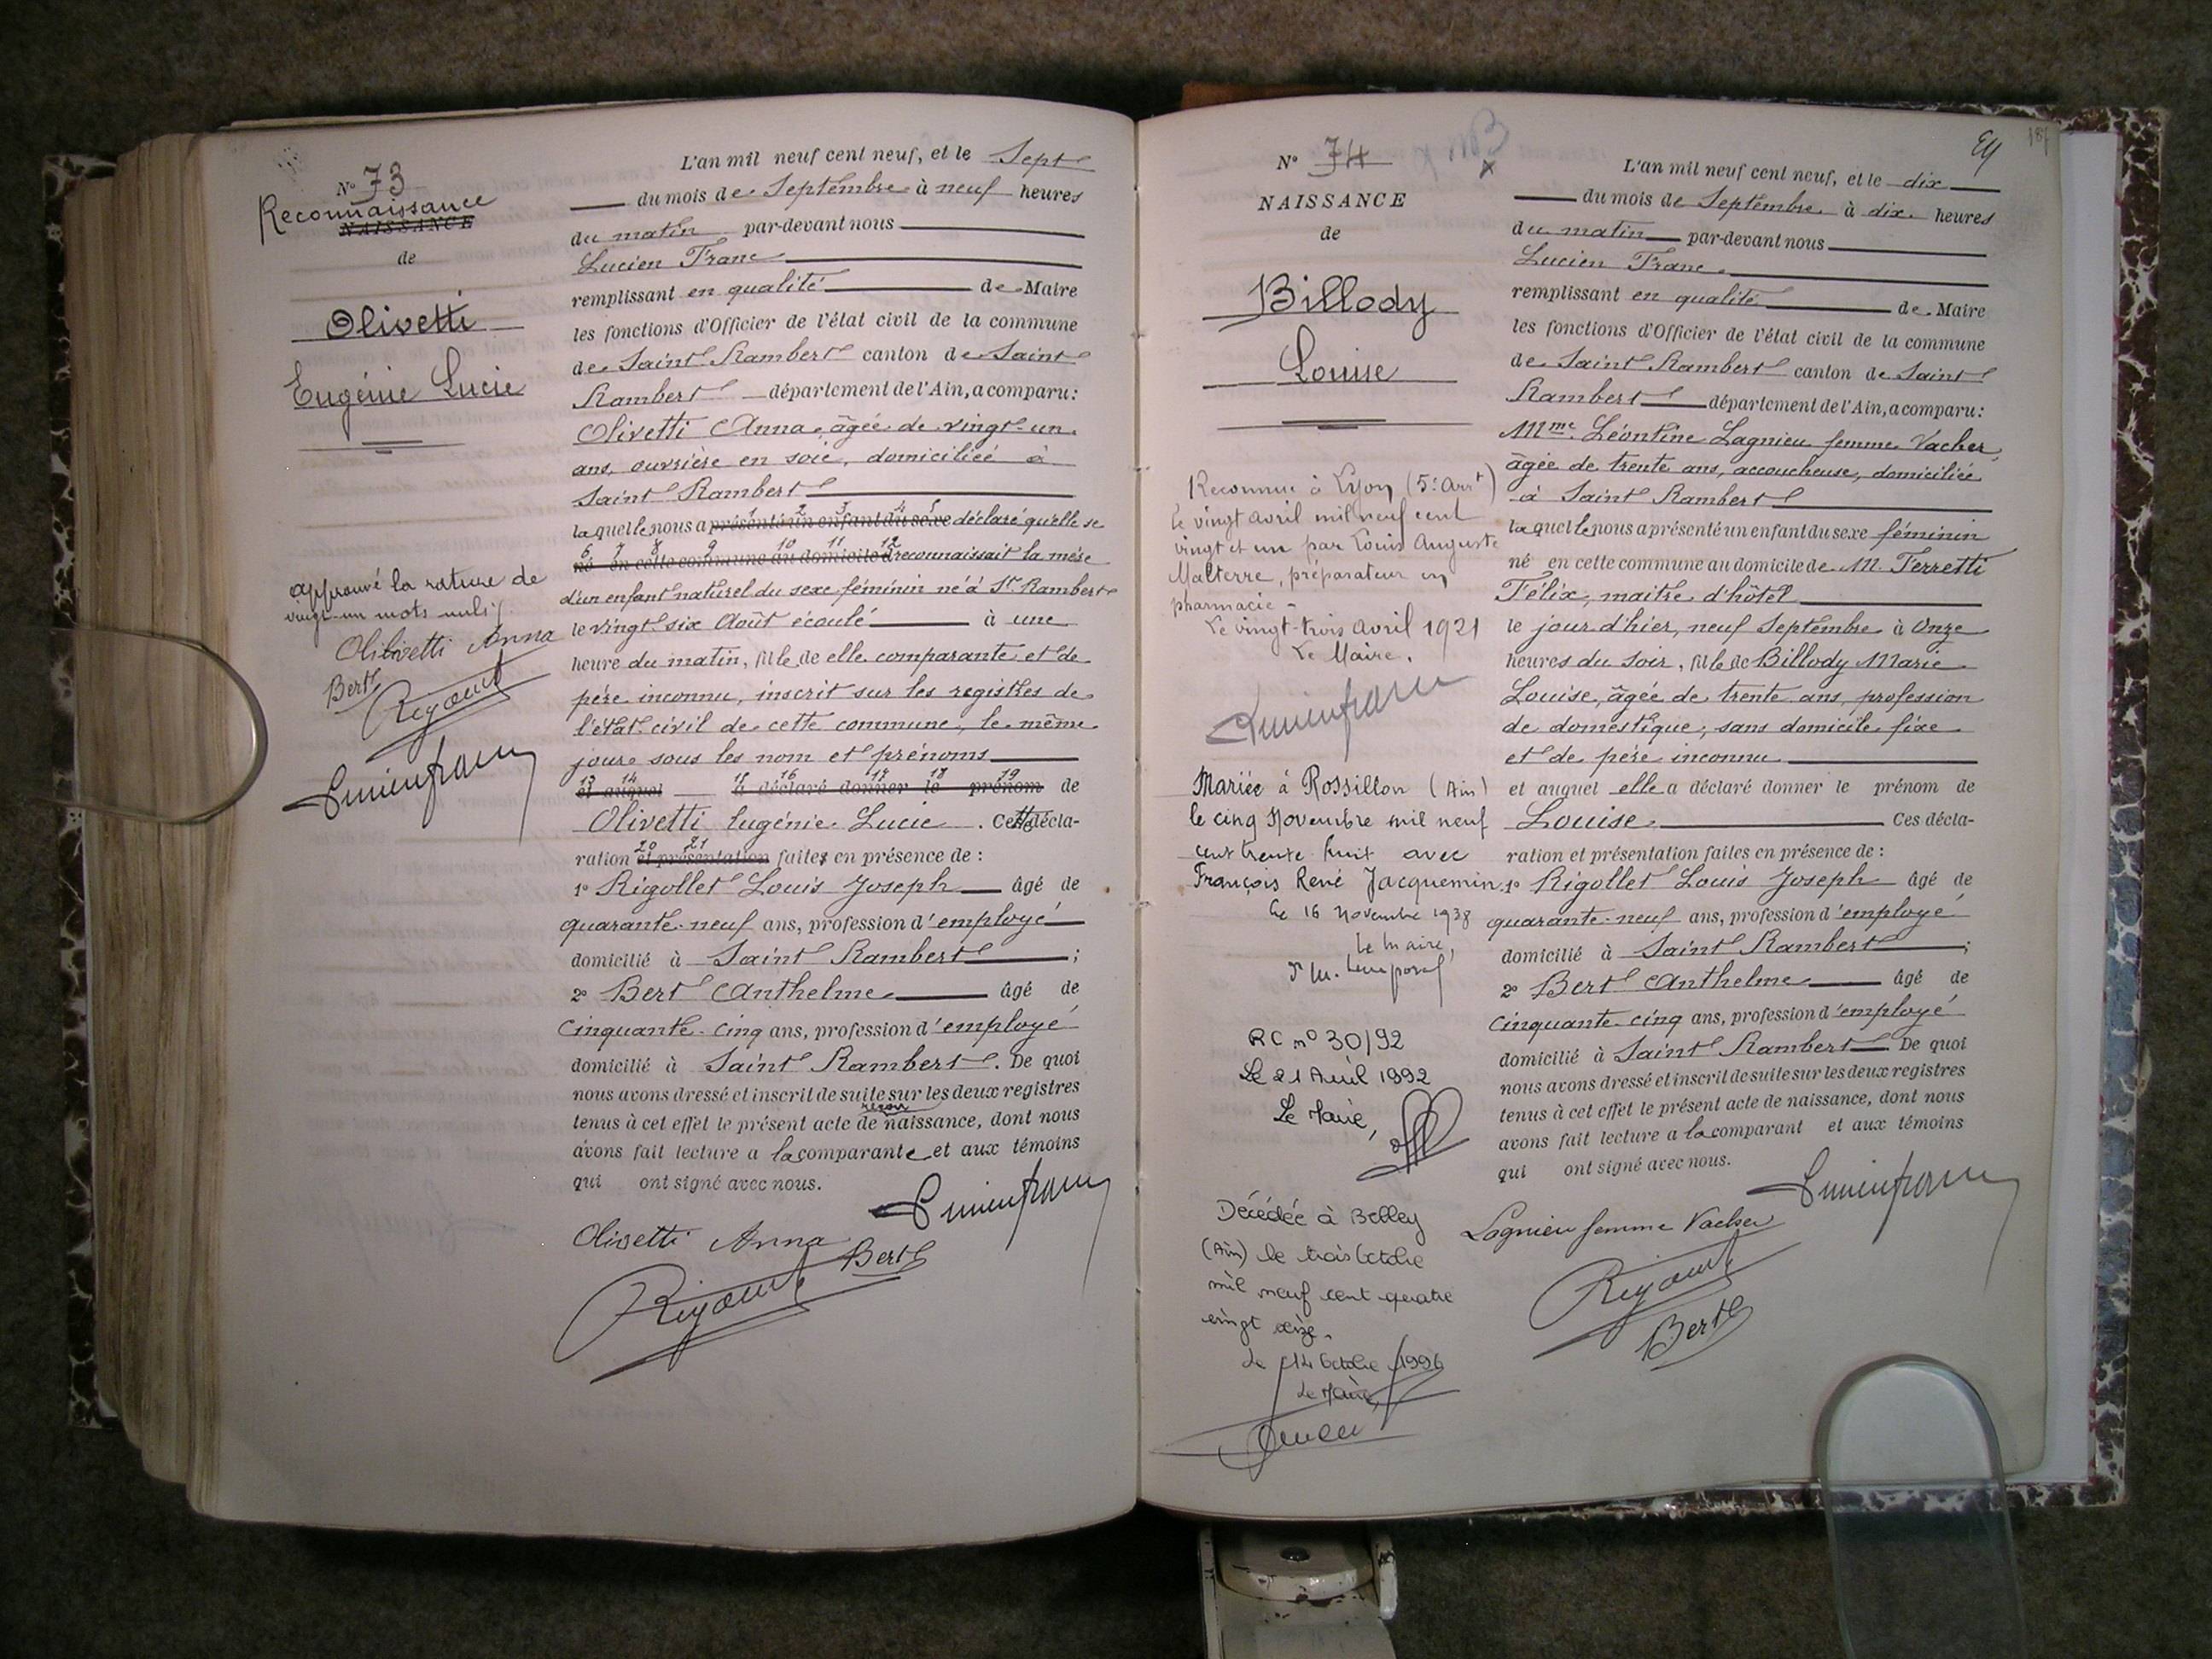 N° 73
Reconnaissance
NAISSANCE
de
Olivetti
Eugénie Lucie
approuvé la rature de
vingt-un mots nuls
Olivetti Anna
Bert
L'an mil neuf cent neuf, et le Sept
du mois de Septembre à neuf heures
du matin par-devant nous
Lucien Franc
remplissant en qualité de Maire
les fonctions d'Officier de l'état civil de la commune
de Saint Rambert canton de Saint
Rambert département de l'Ain, a comparu:
Olivetti Anna, âgée de vingt-un
ans, ouvrière en soie, domiciliée à
Saint Rambert
laquelle nous a présenté un enfant du sexe déclaré qu'elle se
né en cette commune au domicile d reconnaissait la mère
d'un enfant naturel du sexe féminin né à St Rambert
le vingt-six Août écoulé à une
heure du matin, fille de elle comparante et de
père inconnu, inscrit sur les registres de
l'état-civil de cette commune, le même
jour sous les nom et prénoms
13 14 15 16 17 18 19
et auquel a déclaré donner le prénom de
Olivetti Eugénie Lucie. Cette décla-
20 21
ration et présentation faites en présence de :
1° Rigollet Louis Joseph âgé de
quarante-neuf ans, profession d'employé
domicilié à Saint Rambert ;
2° Bert Anthelme âgé de
cinquante-cinq ans, profession d'employé
domicilié à Saint Rambert. De quoi
nous avons dressé et inscrit de suite sur les deux registres
recon
tenus à cet effet le présent acte de naissance, dont nous
avons fait lecture a la comparante et aux témoins
qui ont signé avec nous.
Lucien Franc
Olivetti Anna
Bert
187
N° 74
NAISSANCE
de
Billody
Louise
Reconnue à Lyon (5e Arrt)
le vingt avril mil neuf cent
vingt et un par Louis Auguste
Malterre, préparateur en
pharmacie -
Le vingt-trois avril 1921
Le Maire.
Lucien Franc
Mariée à Rossillon (Ain)
le cinq Novembre mil neuf
cent trente huit avec
François René Jacquemin.
Le 16 Novembre 1938
Le Maire,
RC n° 30/92
Le 21 Avril 1992
Le Maire,
Décédée à Belley
(Ain) le trois Octobre
mil neuf cent quatre
vingt seize.
Le 14 Octobre 1996
Le Maire,
L'an mil neuf cent neuf, et le dix
du mois de Septembre à dix heures
du matin par-devant nous
Lucien Franc
remplissant en qualité de Maire
les fonctions d'Officier de l'état civil de la commune
de Saint Rambert canton de Saint
Rambert département de l'Ain, a comparu:
Mme Léontine Lagnieu femme Vacher,
âgée de trente ans, accoucheuse, domiciliée
à Saint Rambert
laquelle nous a présenté un enfant du sexe féminin
né en cette commune au domicile de M. Ferretti
Félix, maître d'hôtel
le jour d'hier, neuf Septembre à Onze
heures du soir, fille de Billody Marie
Louise, âgée de trente ans, profession
de domestique, sans domicile fixe
et de père inconnu
et auquel elle a déclaré donner le prénom de
Louise Ces décla-
ration et présentation faites en présence de :
1° Rigollet Louis Joseph âgé de
quarante-neuf ans, profession d'employé
domicilié à Saint Rambert ;
2° Bert Anthelme âgé de
cinquante-cinq ans, profession d'employé
domicilié à Saint Rambert De quoi
nous avons dressé et inscrit de suite sur les deux registres
tenus à cet effet le présent acte de naissance, dont nous
avons fait lecture a la comparant et aux témoins
qui ont signé avec nous.
Lucien Franc
Lagnieu femme Vacher
Bert